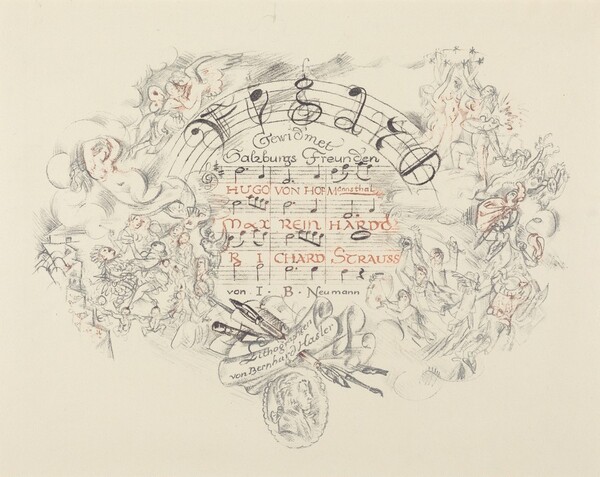 Figaro
Gewidmet
Salzburgs Freunden
HUGO VON HOFMannsthal
Max REINHARDT
RICHARD STRAUSS
von I. B. Neumann
Lithographien
von Bernhard Hasler